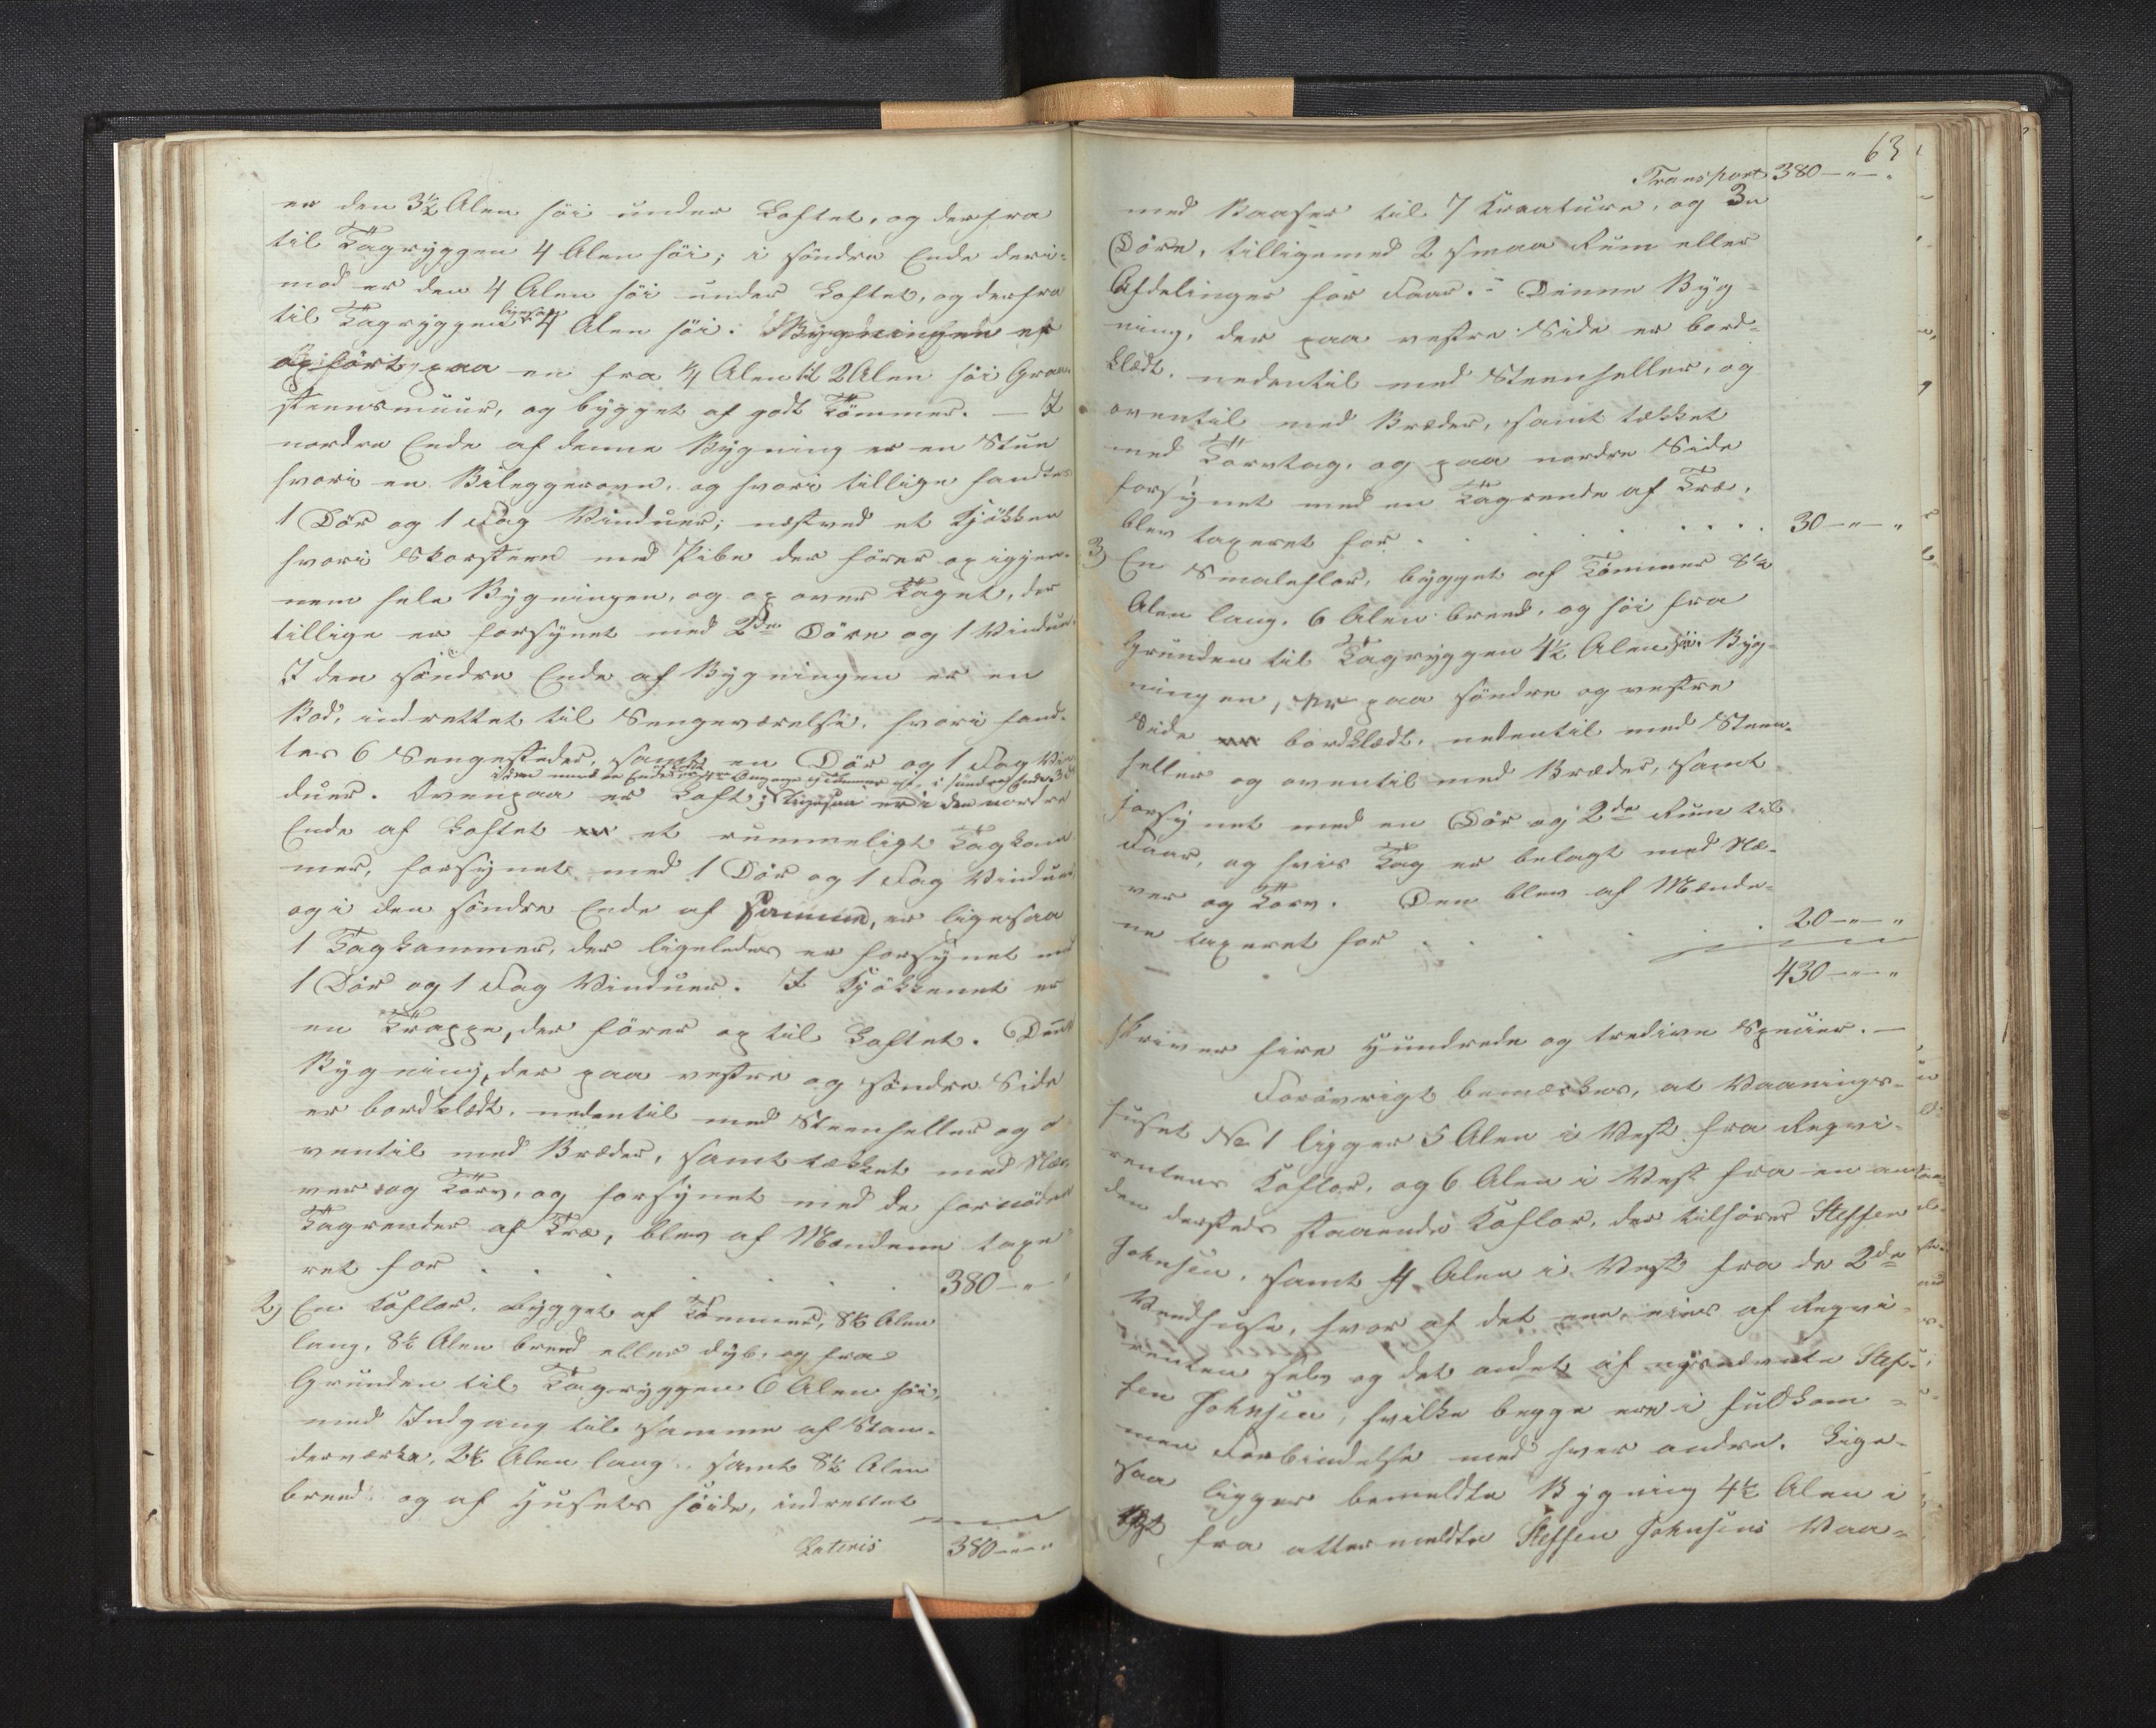 er den 3½ Alen høi under Loftet, og derfra
til Tagryggen 4 Alen høi; i søndre Ende deri-
mod er den 4 Alen høi under Loftet, og derfra
til Tagryggen ligesaa 4 Alen høi. Bygningen er
opført paa en fra ¼ Alen til 2 Alen høi Graa-
steensmuur, og bygget af godt Tømmer. — I
nordre Ende af denne Bygning er en Stue
hvori en Bilæggerovn, og hvori tillige fandtes
1 Dør og 1 Fag Vinduer; næstved et Kjøkken
hvori Skorsteen med Pibe der fører op igjen-
nem hele Bygningen, og op over Taget, der
tillige er forsynet med 2de Døre og 1 Vindue.
I den søndre Ende af Bygningen er en
Bod, indrettet til Sengeværelse, hvori fand-
tes 6 Sengesteder, samt en Dør og 1 Fag Vin-
duer. Ovenpaa er Loft; Ligesaa er i den nordre
Ende af Loftet et rummeligt Tagkam-
mer, forsynet med 1 Dør og 1 Fag Vinduer,
og i den søndre Ende af samme, er ligesaa
1 Tagkammer, der ligeledes er forsynet med
1 Dør og 1 Fag Vinduer. I Kjøkkenet er
en Trappe, der fører op til Loftet. Denne
Bygning, der paa vestre og søndre Side
er bordklædt, nedentil med Steenheller og o-
ventil med Bræder, samt tækket med Næ-
ver og Torv, og forsynet med de fornødne
Tagrender af Træ, blev af Mændene taxe-
ret for . . . . . 380 — " — "
2) En Koflor, bygget af Tømmer, 8½ Alen
lang, 8½ Alen bred eller dyb, og fra
Grunden til Tagryggen 6 Alen høi,
med Indgang til samme af Stan-
derværke, 2½ Alen lang, samt 8½ Alen
bred og af Husets høide, indrettet
Lateris 380 — " — "
63
Transport 380 — " — "
med Baaser til 7 Kreature, og 3de
Døre, tilligemed 2 smaa Rum eller
Afdelinger for Faar. — Denne Byg-
ning, der paa vestre Side er bord-
klædt, nedentil med Steenheller, og
oventil med Bræder, samt tækket
med Torvtag, og paa nordre Side
forsynet med en Tagrende af Træ,
blev taxeret for . . . . . 30 — " — "
3) En Smaleflor, bygget af Tømmer 8½
Alen lang, 6 Alen breed, og høi fra
Grunden til Tagryggen 4½ Alen høi. Byg-
ningen, er paa søndre og vestre
Side bordklædt, nedentil med Steen-
heller og oventil med Bræder, samt
forsynet med en Dør og 2de Rum til
Faar, og hvis Tag er belagt med Næ-
ver og Torv. Den blev af Mænde-
ne taxeret for . . . . . 20 — " — "
430 — " — "
skriver fire Hundrede og tredive Specier. —
Forøvrigt bemærkes, at Vaanings-
huset No 1 ligger 5 Alen i Vest fra Reqvi-
rentens Koflor, og 6 Alen i Vest fra en an-
den dersteds staaende Koflor, der tilhører Steffen
Johnsen, samt 4 Alen i Vest fra de 2de
Vedhuse, hvor af det ene, eies af Reqvi-
renten selv og det andet af nysnævnte Stef-
fen Johnsen, hvilke begge ere i fuldkom-
men Forbindelse med hver andre. Lige-
saa ligger bemeldte Bygning 4½ Alen i
fra attermeldte Steffen Johnsens Vaa-